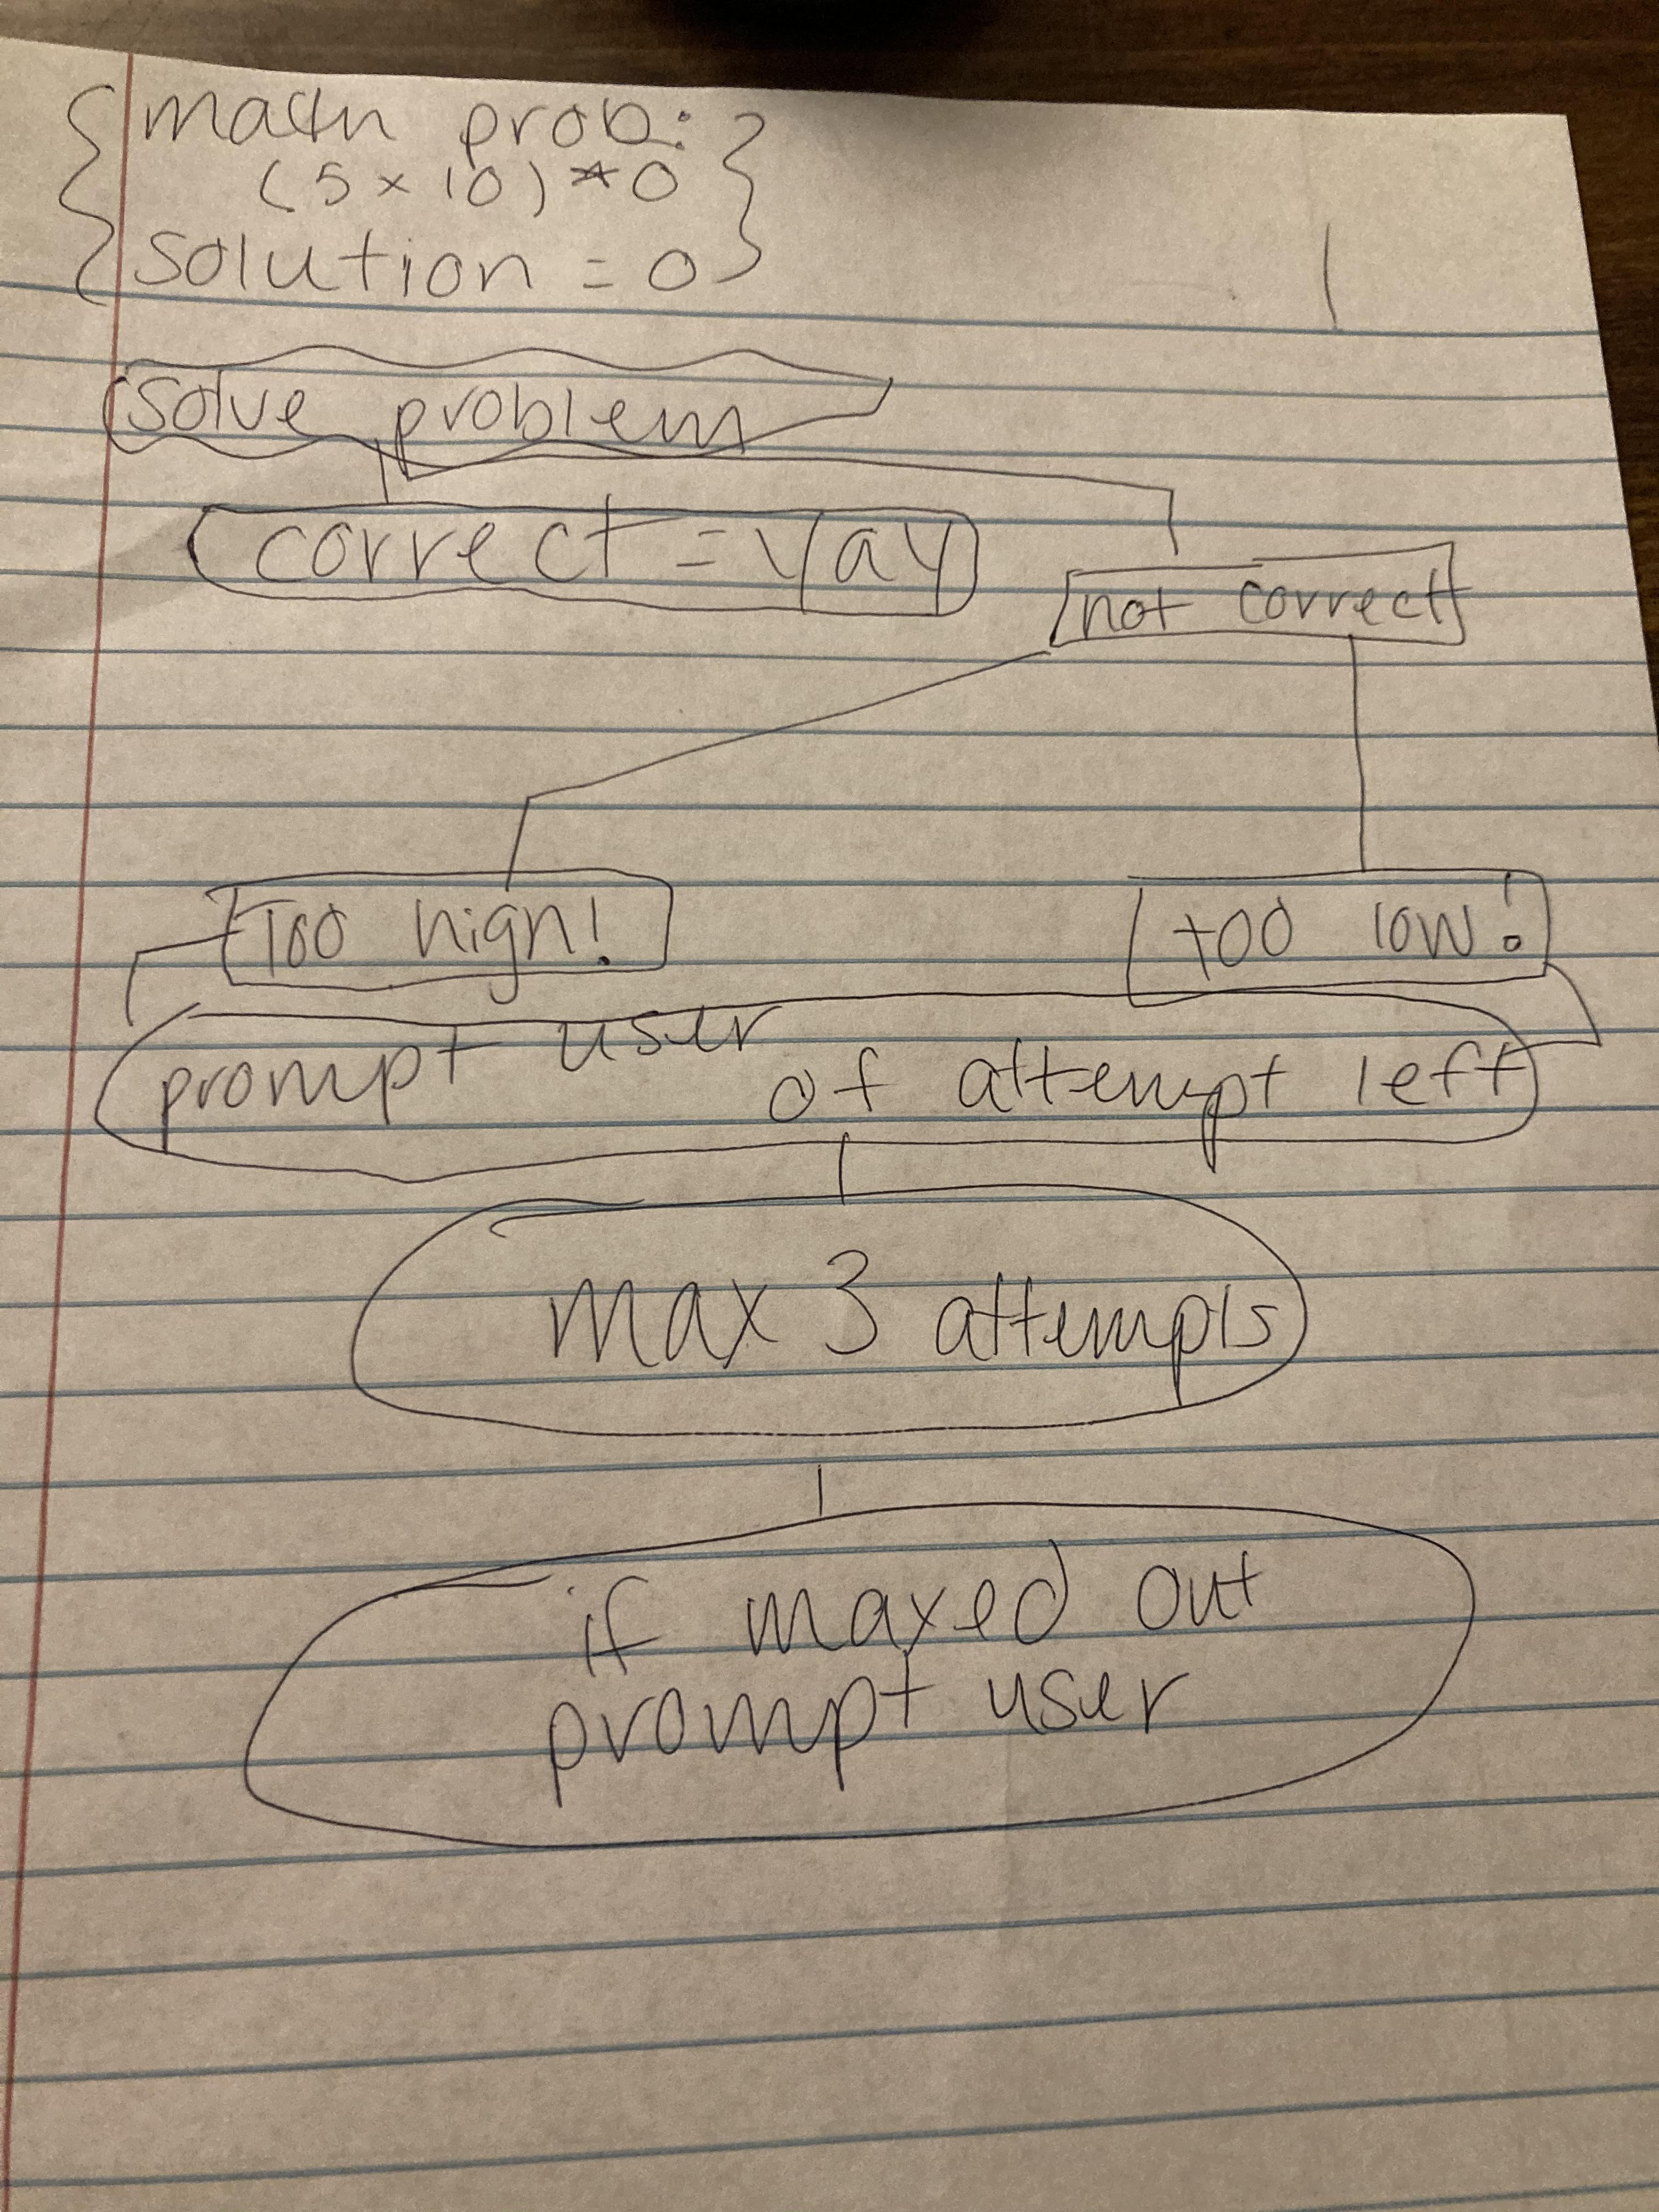 math prob:
(5 x 10) * 0
solution = 0
solve problem
correct = yay
not correct
Too high!
too low!
prompt user of attempt left
max 3 attempts
if maxed out
prompt user